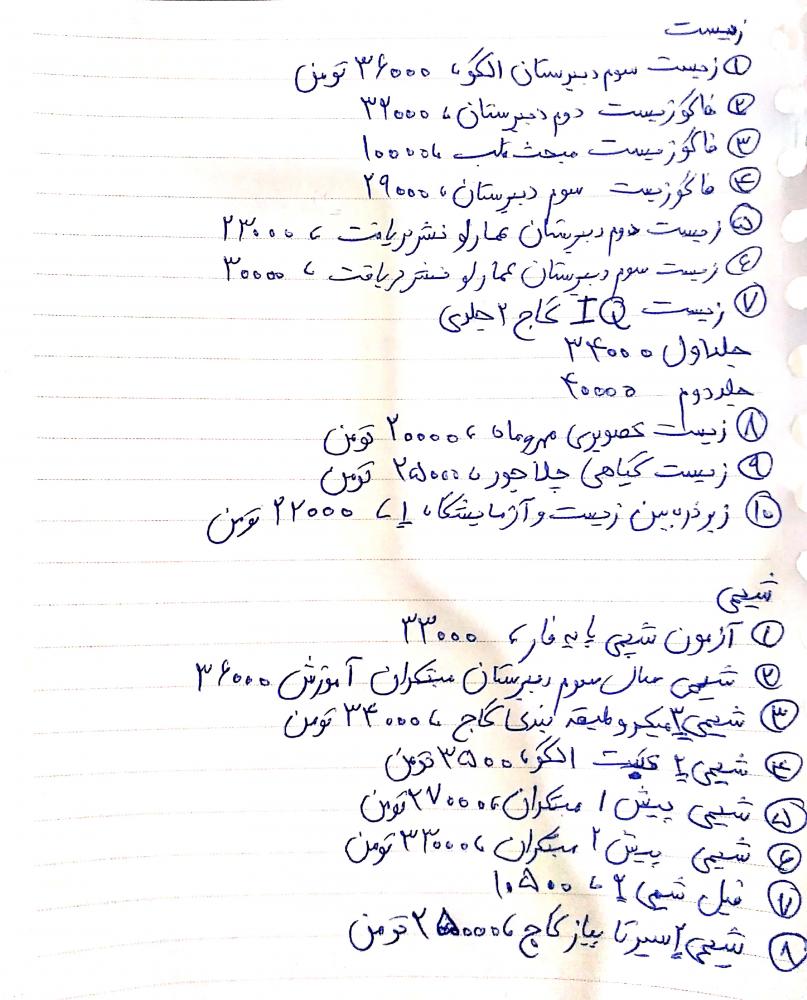 زیست
① زیست سوم دبیرستان الگو، ۳۶۰۰۰ تومن
② فاگوزیست دوم دبیرستان، ۳۲۰۰۰
③ فاگوزیست مبحث قلب، ۱۰۰۰۰
④ فاگوزیست سوم دبیرستان، ۲۹۰۰۰
⑤ زیست دوم دبیرستان عمارلو نشر دریافت، ۲۳۰۰۰
⑥ زیست سوم دبیرستان عمارلو نشر دریافت، ۳۰۰۰۰
⑦ زیست IQ گاج ۲ جلدی
جلد اول ۳۴۰۰۰
جلد دوم ۴۰۰۰۰
⑧ زیست تصویری مهروماه، ۲۰۰۰۰ تومن
⑨ زیست گیاهی چلاجور، ۲۵۰۰۰ تومن
⑩ زیر ذره بین زیست و آزمایشگاه ۱، ۲۲۰۰۰ تومن
شیمی
① آزمون شیمی پایه فار، ۳۳۰۰۰
② شیمی سال سوم دبیرستان مبتکران آموزش ۳۶۰۰۰
③ شیمی ۳ میکرو طبقه بندی گاج، ۳۴۰۰۰ تومن
④ شیمی ۲ تست الگو، ۳۵۰۰۰ تومن
⑤ شیمی پیش ۱ مبتکران، ۲۷۰۰۰ تومن
⑥ شیمی پیش ۲ مبتکران، ۳۳۰۰۰ تومن
⑦ فیل شیمی ۲، ۱۰۵۰۰
⑧ شیمی ۲ سیر تا پیاز گاج، ۲۵۰۰۰ تومن